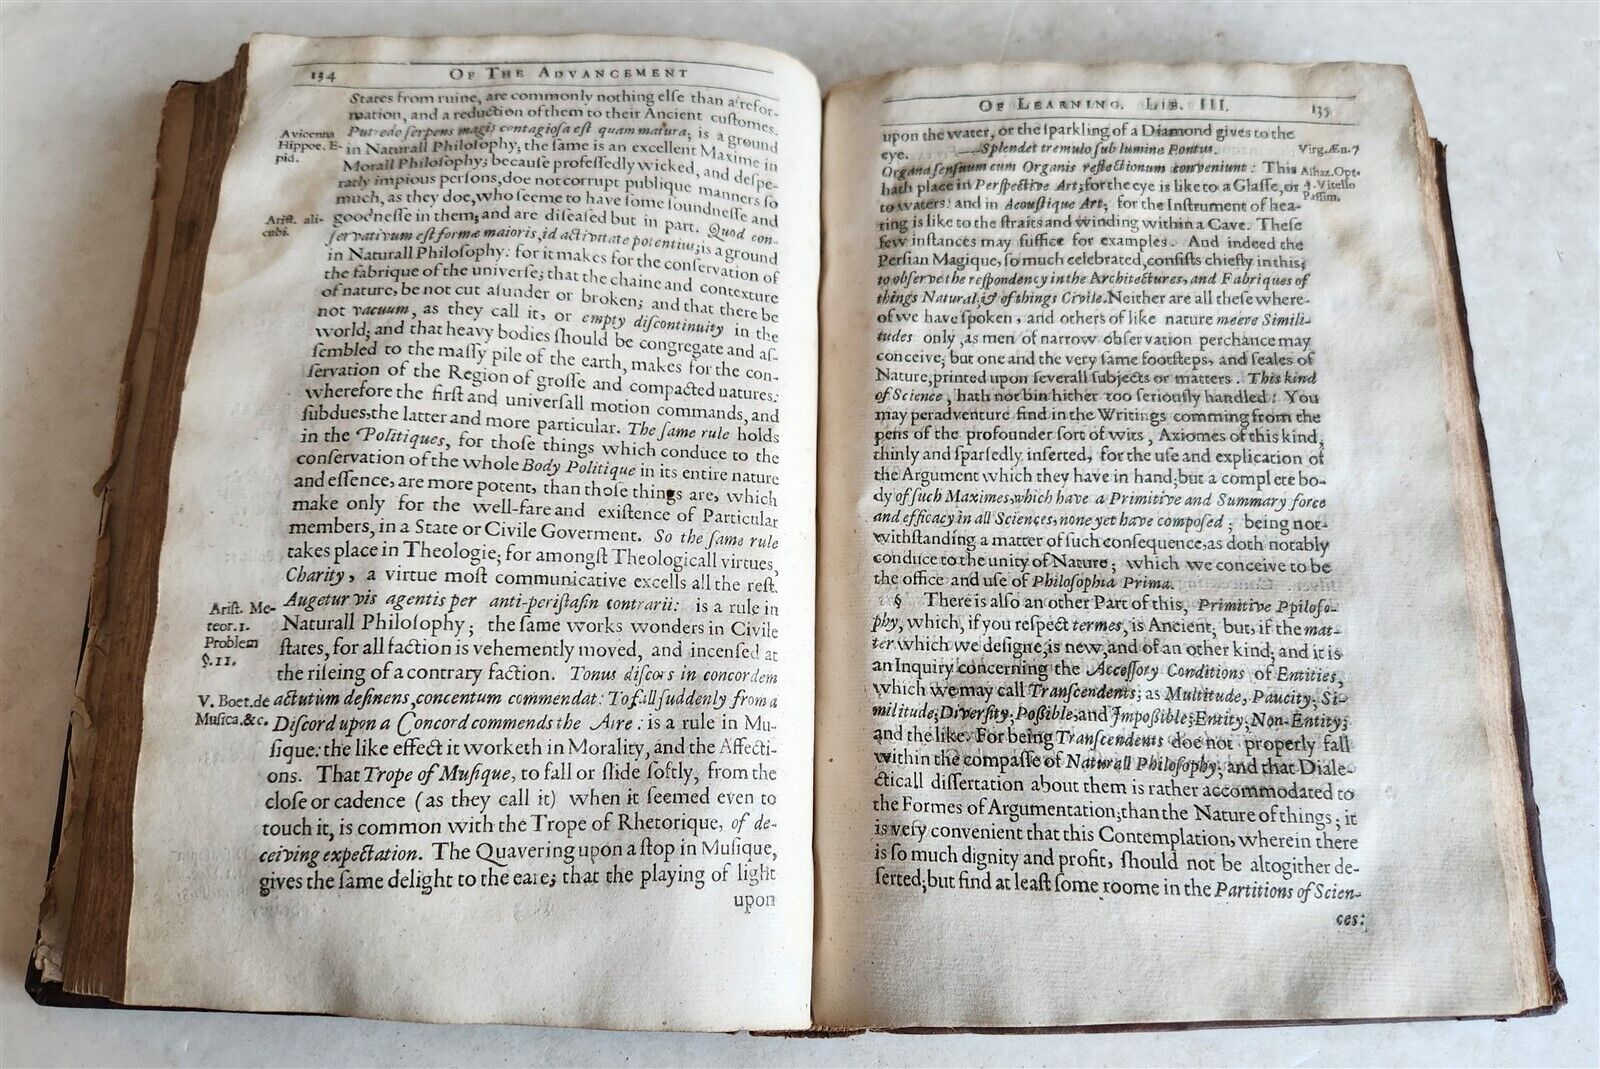 134 OF THE ADVANCEMENT
States from ruine, are commonly nothing else than a refor-
mation, and a reduction of them to their Ancient customes.
Avicenna
Hippoc. E-
pid.
Putredo serpens magis contagiosa est quam matura; is a ground
in Naturall Philosophy; the same is an excellent Maxime in
Morall Philosophy; because professedly wicked, and despe-
ratly impious persons, doe not corrupt publique manners so
much, as they doe, who seeme to have some soundnesse and
Arist. ali-
cubi.
goodnesse in them; and are diseased but in part. Quod con-
servativum est formæ maioris, id activitate potentius; is a ground
in Naturall Philosophy: for it makes for the conservation of
the fabrique of the universe; that the chaine and contexture
of nature, be not cut asunder or broken; and that there be
not vacuum, as they call it, or empty discontinuity in the
world; and that heavy bodies should be congregate and as-
sembled to the massy pile of the earth, makes for the con-
servation of the Region of grosse and compacted natures:
wherefore the first and universall motion commands, and
subdues, the latter and more particular. The same rule holds
in the Politiques, for those things which conduce to the
conservation of the whole Body Politique in its entire nature
and essence, are more potent, than those things are, which
make only for the well-fare and existence of Particular
members, in a State or Civile Goverment. So the same rule
takes place in Theologie; for amongst Theologicall virtues,
Charity, a virtue most communicative excells all the rest.
Arist. Me-
teor. 1.
Problem
§. 11.
Augetur vis agentis per anti-peristasin contrarii: is a rule in
Naturall Philosophy; the same works wonders in Civile
states, for all faction is vehemently moved, and incensed at
the riseing of a contrary faction. Tonus discors in concordem
V. Boet. de
Musica. &c.
actutum desinens, concentum commendat: To fall suddenly from a
Discord upon a Concord commends the Aire: is a rule in Mu-
sique: the like effect it worketh in Morality, and the Affecti-
ons. That Trope of Musique, to fall or slide softly, from the
close or cadence (as they call it) when it seemed even to
touch it, is common with the Trope of Rhetorique, of de-
ceiving expectation. The Quavering upon a stop in Musique,
gives the same delight to the eare; that the playing of light
upon
OF LEARNING. LIB. III. 135
upon the water, or the sparkling of a Diamond gives to the
eye. —— Splendet tremulo sub lumine Pontus.
Virg. Æn. 7
Organa sensuum cum Organis reflectionum conveniunt: This
Alhaz. Opt.
4. Vitello
Passim.
hath place in Perspective Art; for the eye is like to a Glasse, or
to waters: and in Acoustique Art; for the Instrument of hea-
ring is like to the straits and winding within a Cave. These
few instances may suffice for examples. And indeed the
Persian Magique, so much celebrated, consists chiefly in this;
to observe the respondency in the Architectures, and Fabriques of
things Natural; & of things Civile. Neither are all these where-
of we have spoken, and others of like nature meere Simili-
tudes only, as men of narrow observation perchance may
conceive; but one and the very same footsteps, and seales of
Nature, printed upon severall subjects or matters. This kind
of Science, hath not bin hither too seriously handled: You
may peradventure find in the Writings comming from the
pens of the profounder sort of wits, Axiomes of this kind,
thinly and sparsedly inserted, for the use and explication of
the Argument which they have in hand; but a complete bo-
dy of such Maximes, which have a Primitive and Summary force
and efficacy in all Sciences, none yet have composed; being not-
withstanding a matter of such consequence, as doth notably
conduce to the unity of Nature; which we conceive to be
the office and use of Philosophia Prima.
§ There is also an other Part of this, Primitive Ppiloso-
phy, which, if you respect termes, is Ancient; but, if the mat-
ter which we designe, is new, and of an other kind; and it is
an Inquiry concerning the Accessory Conditions of Entities,
which we may call Transcendents; as Multitude, Paucity; Si-
militude; Diversity; Possible, and Impossible; Entity, Non-Entity;
and the like. For being Transcendents doe not properly fall
within the compasse of Naturall Philosophy; and that Diale-
cticall dissertation about them is rather accommodated to
the Formes of Argumentation; than the Nature of things; it
is very convenient that this Contemplation, wherein there
is so much dignity and profit, should not be altogither de-
serted; but find at least some roome in the Partitions of Scien-
ces: